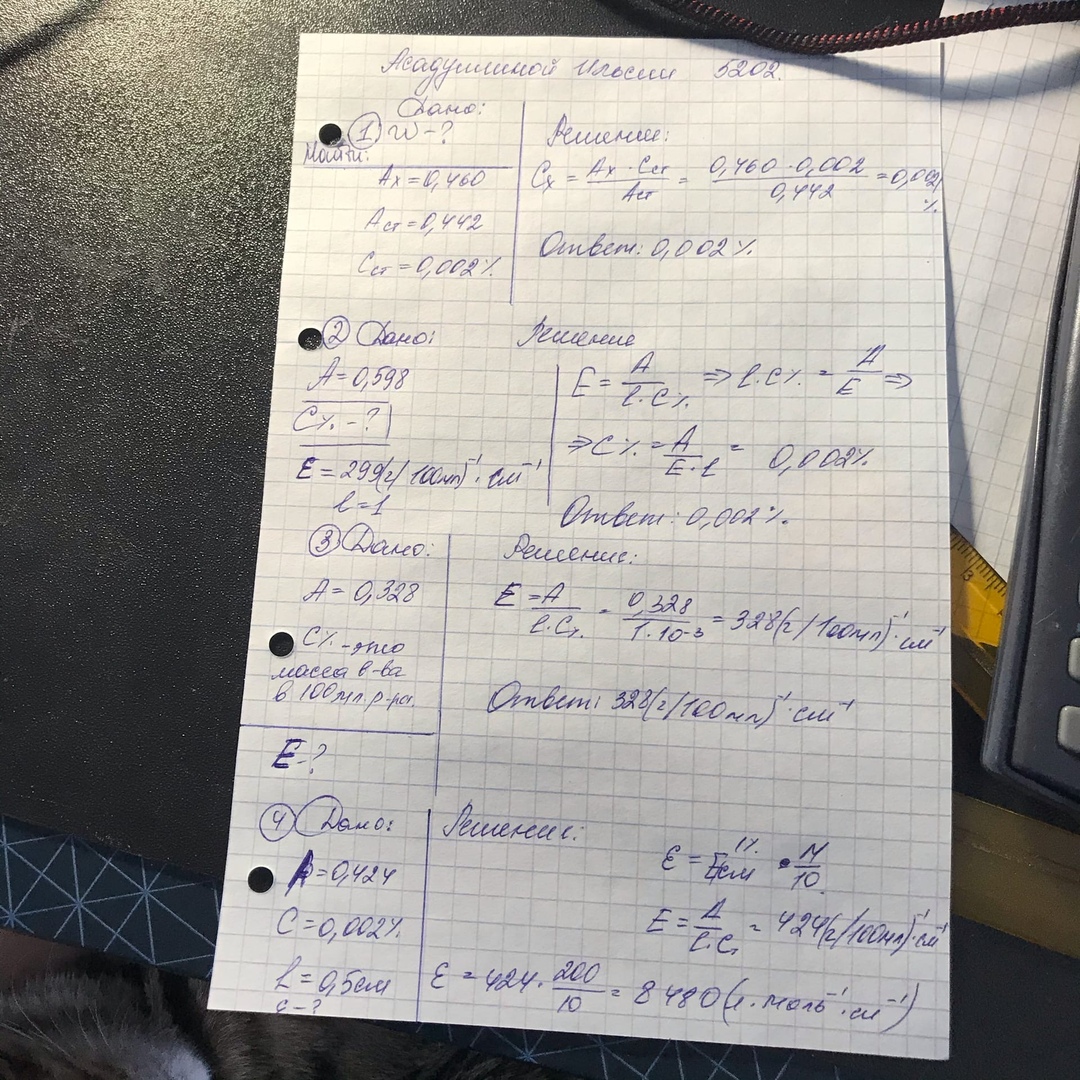 Асадуллиной Ильсии 5202.
Дано:
① W-?
Найти:
Aх = 0,460
Aст = 0,442
Cст = 0,002%
Решение:
Cх = Aх · Cст / Aст = 0,460 · 0,002 / 0,442 = 0,002%
Ответ: 0,002%
② Дано:
A = 0,598
C% - ?
E = 299(г/100мл)⁻¹ · см⁻¹
l = 1
Решение
E = A / l·C% ⇒ l·C% = A / E ⇒
⇒ C% = A / E·l = 0,002%
Ответ: 0,002%.
③ Дано:
A = 0,328
C% - это
масса в-ва
в 100мл р-ра.
E - ?
Решение:
E = A / l·C% = 0,328 / 1·10-3 = 328(г/100мл)⁻¹ · см⁻¹
Ответ: 328(г/100мл)⁻¹ · см⁻¹
④ Дано:
A = 0,424
C = 0,002%
l = 0,5см
ε - ?
Решение:
ε = E 1% 1см · M / 10
E = A / l·C% = 424(г/100мл)⁻¹ · см⁻¹
ε = 424 · 200 / 10 = 8480 (л · моль⁻¹ · см⁻¹)